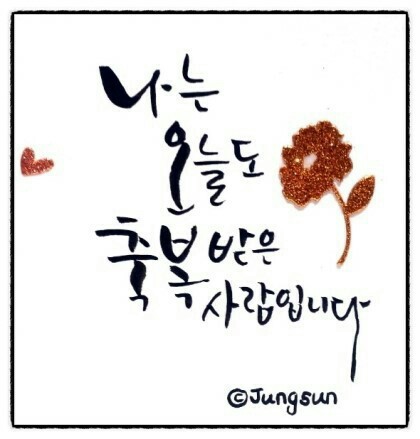 나는
오늘도
축복 받은
사람입니다
©Jungsun